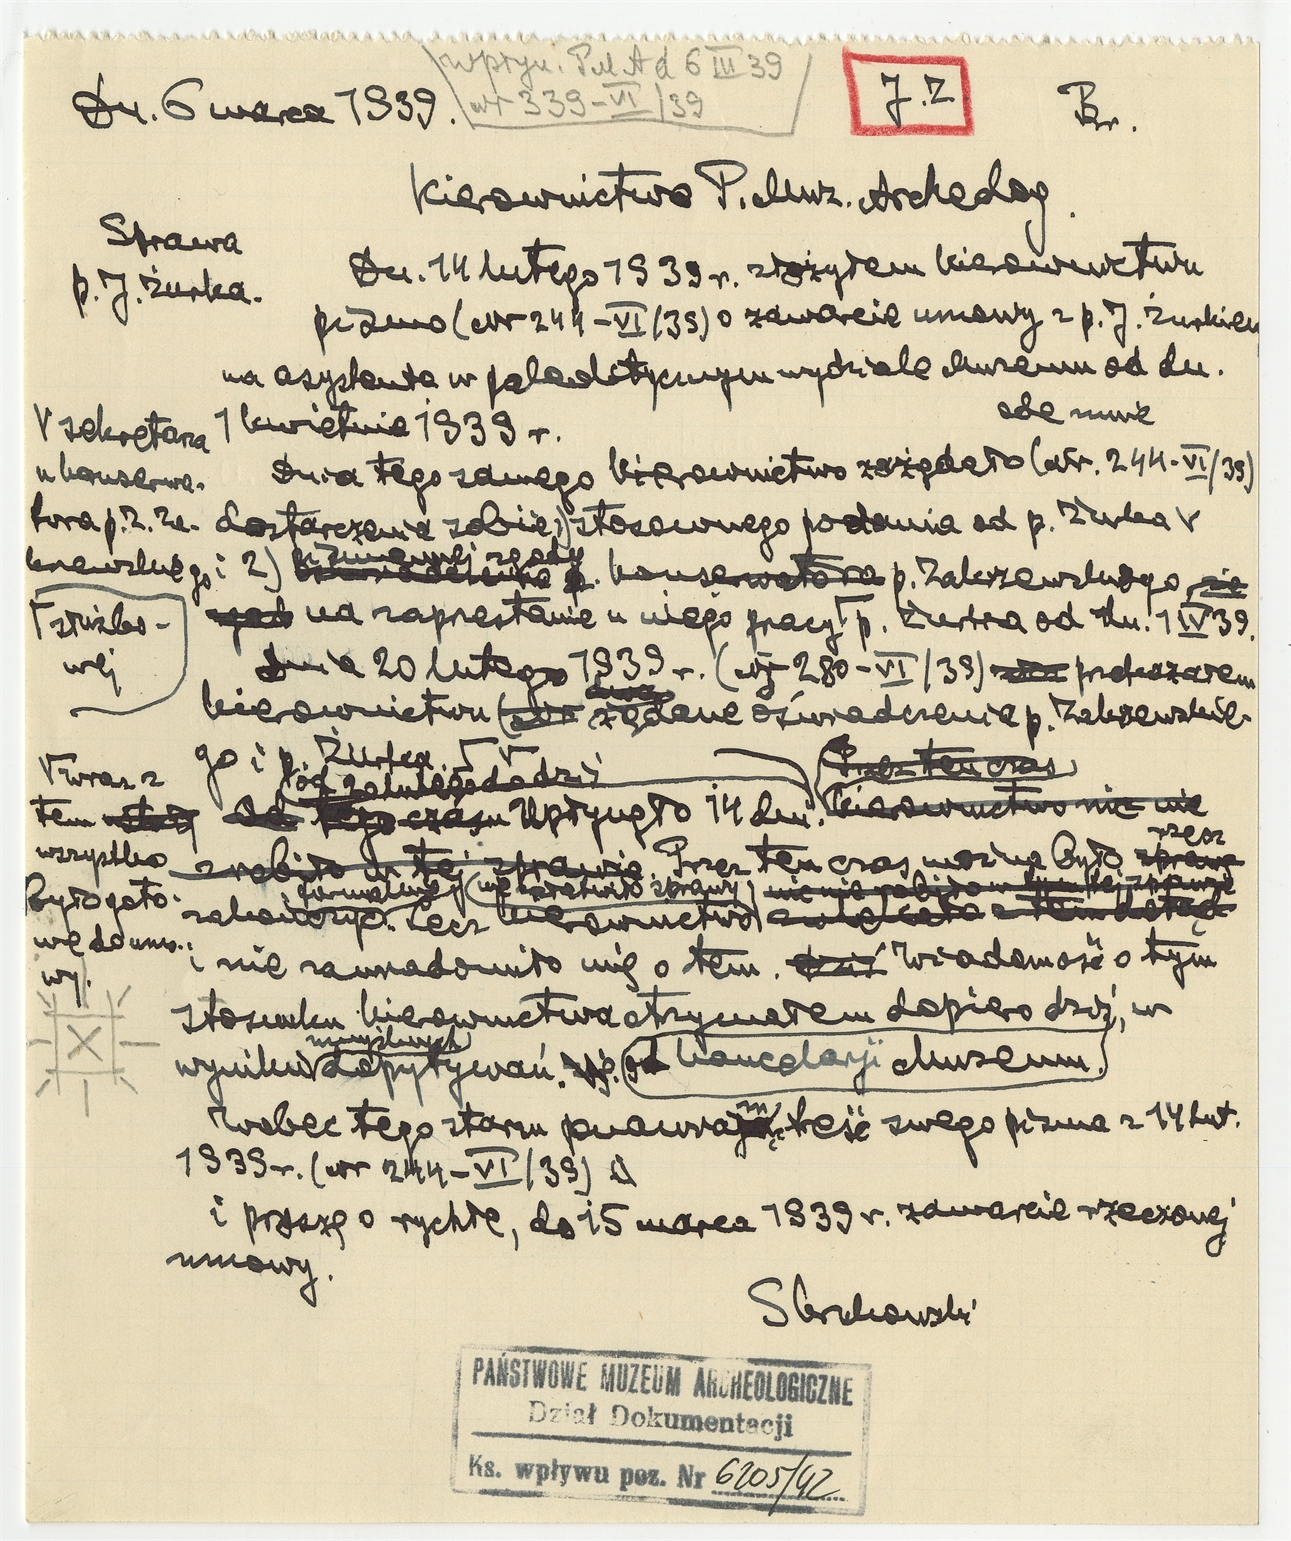 wpłyn. PMA d 6 III 39
nr 339-VI/39
J. Z
Br.
Dn. 6 marca 1939.
Kierownictwo P. Muz. Archeolog.
Sprawa
p. J. Żurka.
Dn. 14 lutego 1939 r. złożyłem kierownictwu
pismo (nr 244-VI/39) o zawarcie umowy z p. J. Żurkiem
na asystenta w paleolitycznym wydziale Muzeum od dn.
1 kwietnia 1939 r.
ode mnie
Dnia tego samego kierownictwo zażądało (nr. 244-VI/39)
dostarczenia sobie 1) stosownego podania od p. Żurka V
V sekretarza
u konserwa-
tora p. Z. Za-
krzewskiego
pisemnej zgody
i 2) konserwatora p. Zakrzewskiego
na zaprzestanie u niego pracy Γ p. Żurka od dn. 1 IV 39.
Γ służbo-
wej
Dnia 20 lutego 1939 r. (nr 280-VI/39) przekazałem
kierownictwu żądane oświadczenia p. Zakrzewskie-
go i p. Żurka. V
V wraz z
tem
wszystko
było goto-
we do umo-
wy.
Od 20 lutego do dziś
Upłynęło 14 dni. Przez ten czas
kierownictwo nic nie
zrobiło w tej sprawie. Przez ten czas można było rzecz
formalnie
zakończyć. Lecz kierownictwo nie załatwiło sprawy
i nie zawiadomiło mię o tem. Wiadomość o tym
stosunku kierownictwa otrzymałem dopiero dziś, w
wyniku umyślnych dopytywań. od kancelarji Muzeum.
Wobec tego stanu ponawiam treść swego pisma z 14 lut.
1939 r. (nr 244-VI/39)
i proszę o rychłe, do 15 marca 1939 r. zawarcie rzeczonej
umowy.
S Krukowski
PAŃSTWOWE MUZEUM ARCHEOLOGICZNE
Dział Dokumentacji
Ks. wpływu poz. Nr 6205/42